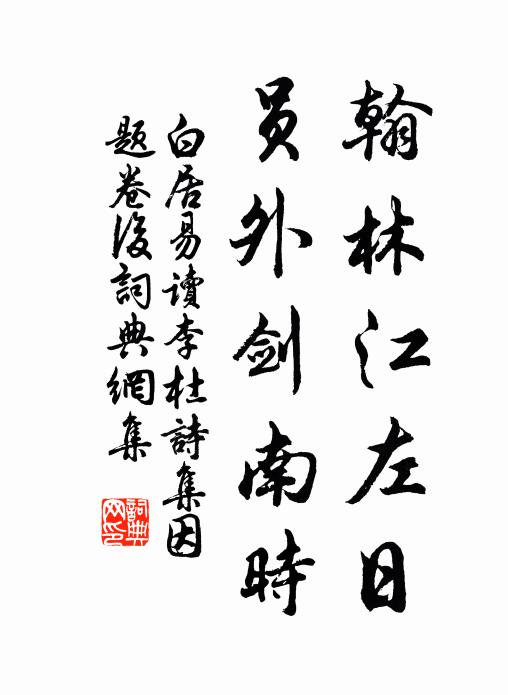 翰林江左日
員外劍南時
白居易讀李杜詩集因
題卷後詞典網集
詞典
网印